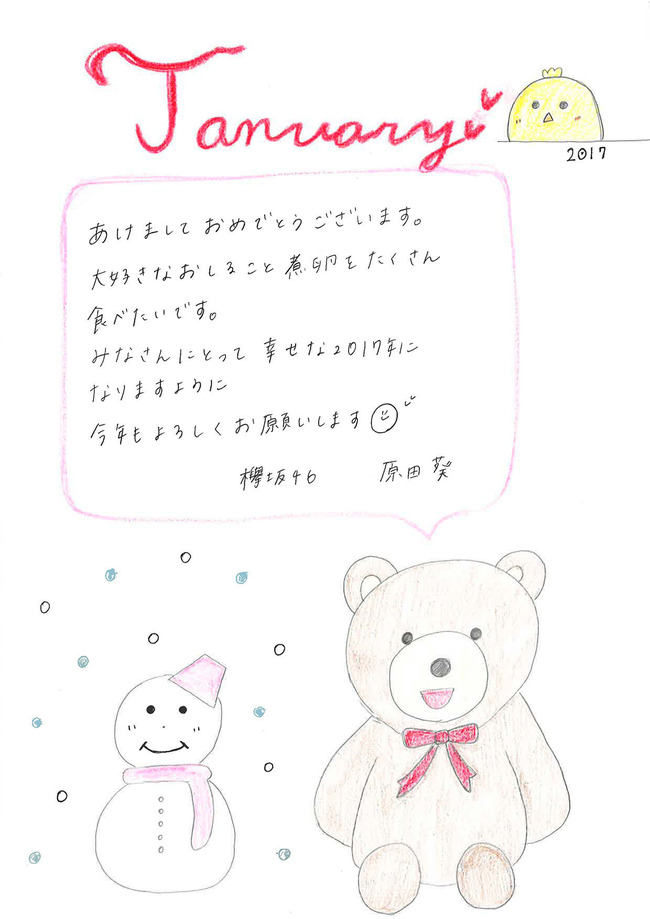 January
2017
あけましておめでとうございます。
大好きなおしること煮卵をたくさん
食べたいです。
みなさんにとって幸せな2017年に
なりますように
今年もよろしくお願いします
欅坂46 原田葵